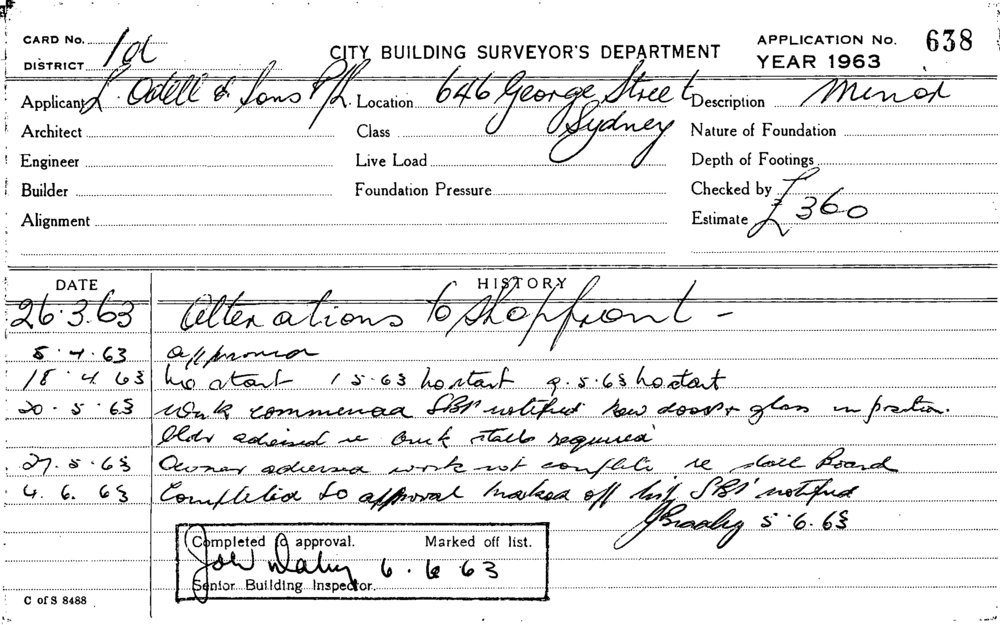 CARD No. 1a
DISTRICT
CITY BUILDING SURVEYOR'S DEPARTMENT
APPLICATION No. 638
YEAR 1963
Applicant L. Odell & Sons P/L
Location 646 George Street
Sydney
Description Minor
Architect
Class
Nature of Foundation
Engineer
Live Load
Depth of Footings
Builder
Foundation Pressure
Checked by
Alignment
Estimate £360
DATE
HISTORY
26.3.63 Alterations to Shopfront -
5.4.63 approved
18.4.63 no start 1.5.63 no start 9.5.63 no start
20.5.63 Work commenced SBI notified New door & glass in position.
Bldr advised re brick stalls required
27.5.63 Owner advised work not complete re stall Board
4.6.63 Completed to approval marked off list SBI notified
5.6.63
Completed approval. Marked off list.
6.6.63
Senior Building Inspector.
C of S 8488